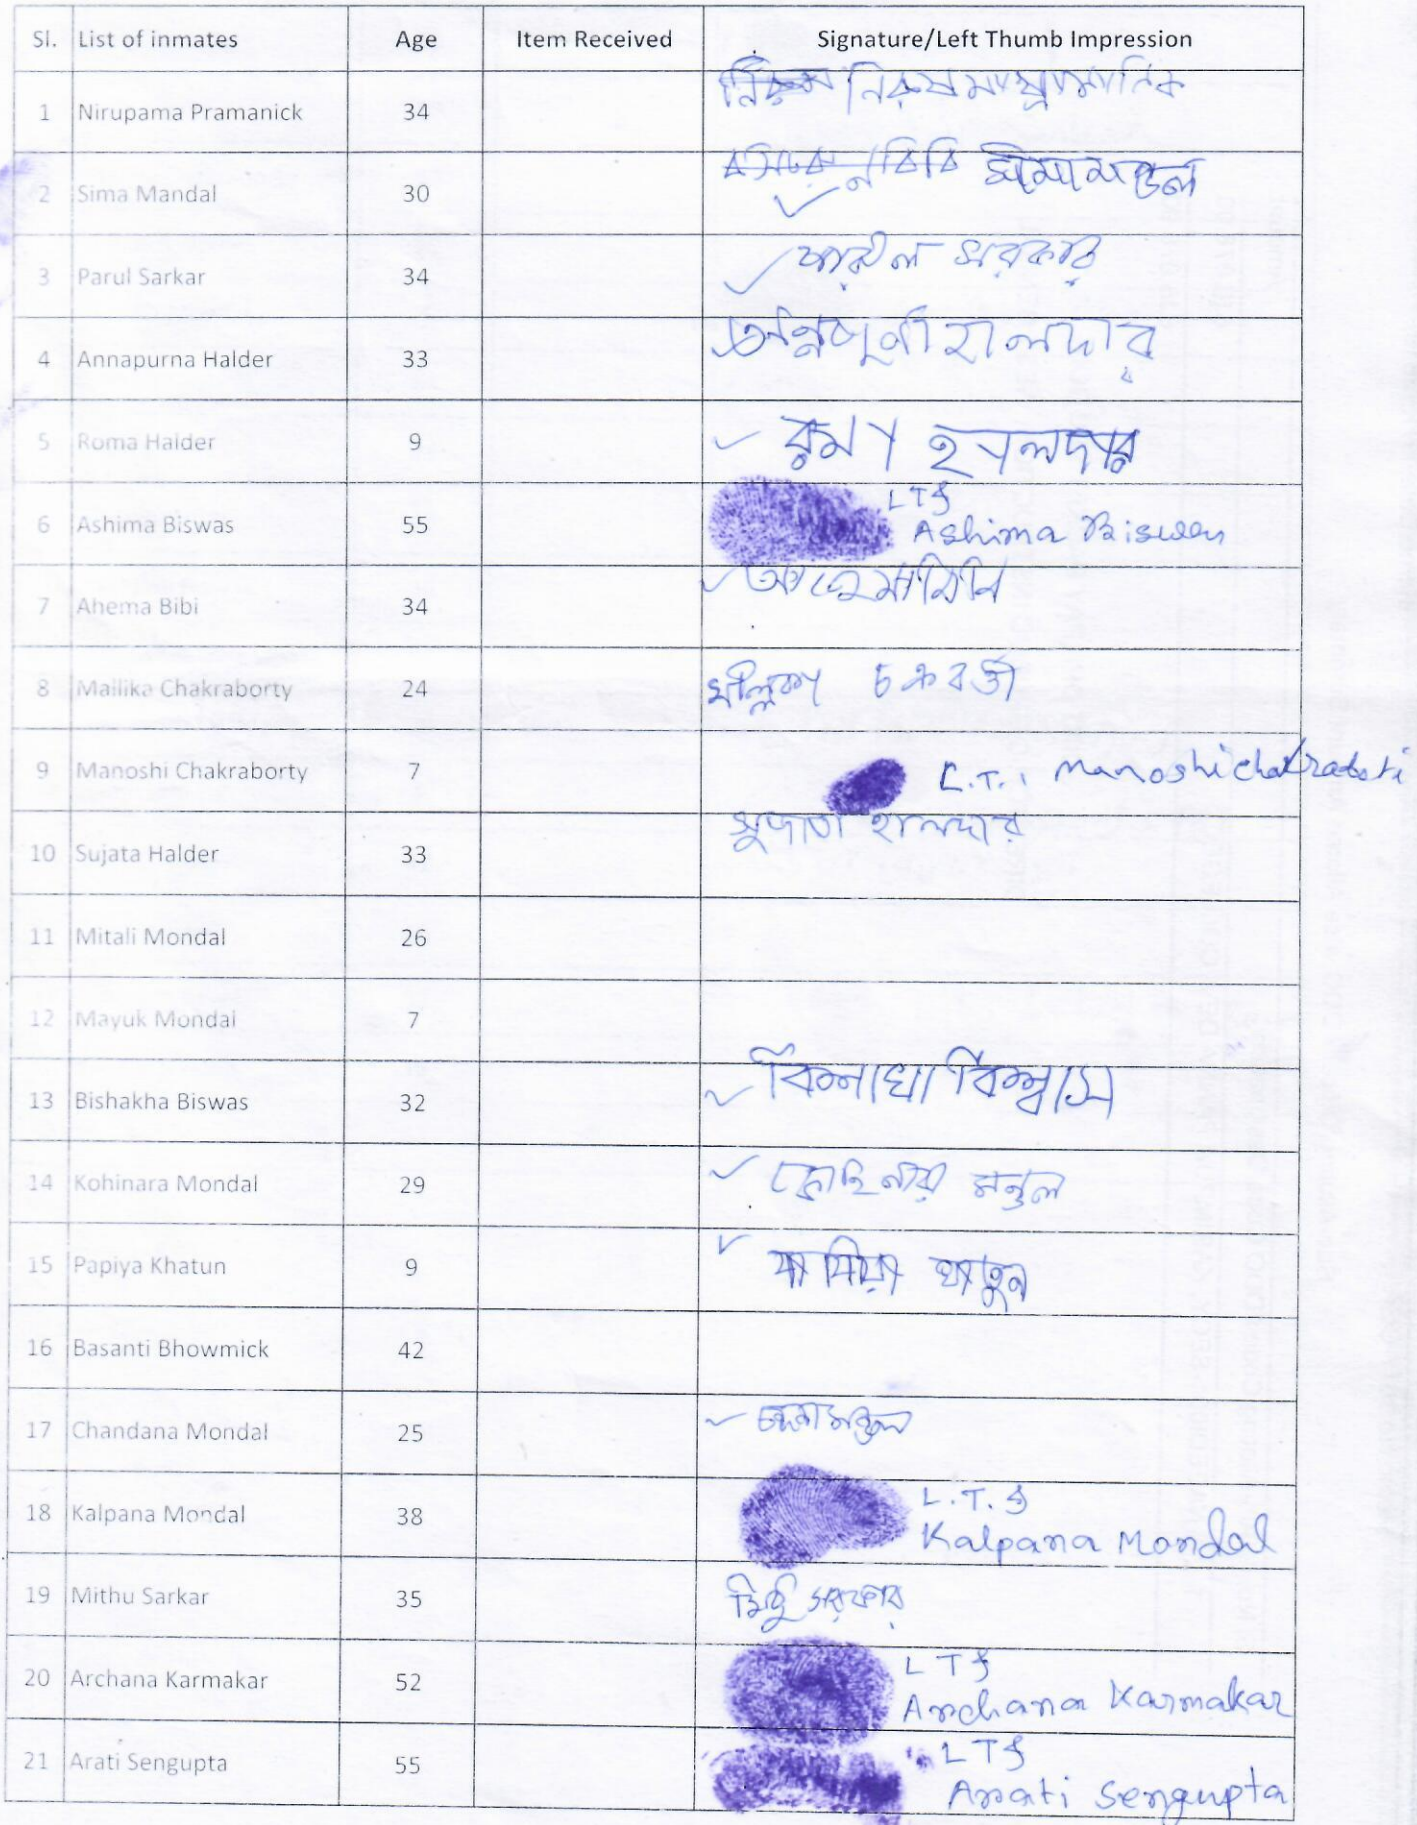 Sl. List of inmates Age Item Received Signature/Left Thumb Impression
1 Nirupama Pramanick 34 নিরুপমা প্রামানিক
2 Sima Mandal 30 বিবি সীমা মণ্ডল
3 Parul Sarkar 34 পারুল সরকার
4 Annapurna Halder 33 অন্নপূর্ণা হালদার
5 Roma Halder 9 রমা হালদার
6 Ashima Biswas 55 LTI
Ashima Biswas
7 Ahema Bibi 34 আহেমা বিবি
8 Mallika Chakraborty 24 মল্লিকা চক্রবর্তী
9 Manoshi Chakraborty 7 L.T.I Manoshi Chakraboti
10 Sujata Halder 33 সুজাতা হালদার
11 Mitali Mondal 26
12 Mayuk Mondal 7
13 Bishakha Biswas 32 বিশাখা বিশ্বাস
14 Kohinara Mondal 29 কোহিনারা মন্ডল
15 Papiya Khatun 9 পাপিয়া খাতুন
16 Basanti Bhowmick 42
17 Chandana Mondal 25 চন্দনা মন্ডল
18 Kalpana Mondal 38 L.T.I
Kalpana Mondal
19 Mithu Sarkar 35 মিঠু সরকার
20 Archana Karmakar 52 LTI
Archana Karmakar
21 Arati Sengupta 55 LTI
Arati Sengupta